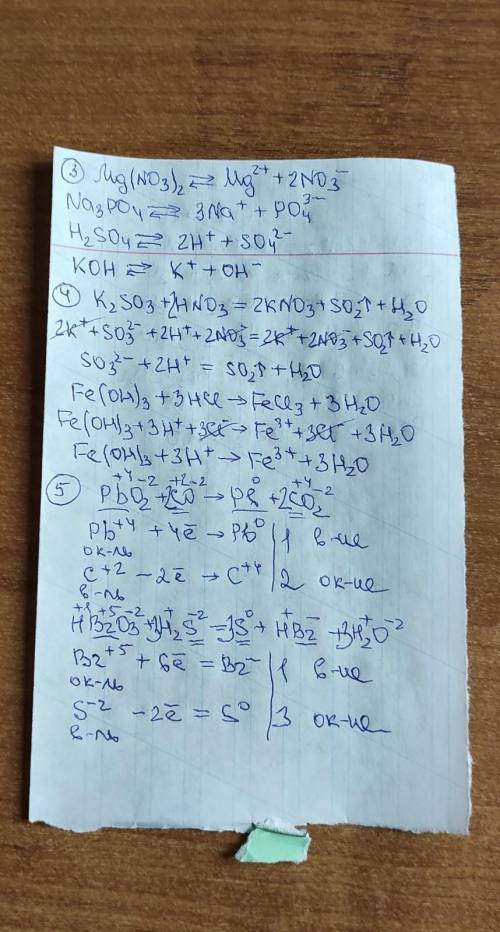 ③ Mg(NO3)2 ⇄ Mg²⁺ + 2NO3⁻
Na3PO4 ⇄ 3Na⁺ + PO4³⁻
H2SO4 ⇄ 2H⁺ + SO4²⁻
KOH ⇄ K⁺ + OH⁻
④ K2SO3 + 2HNO3 = 2KNO3 + SO2↑ + H2O
2K⁺ + SO3²⁻ + 2H⁺ + 2NO3⁻ = 2K⁺ + 2NO3⁻ + SO2↑ + H2O
SO3²⁻ + 2H⁺ = SO2↑ + H2O
Fe(OH)3 + 3HCl → FeCl3 + 3H2O
Fe(OH)3 + 3H⁺ + 3Cl⁻ → Fe³⁺ + 3Cl⁻ + 3H2O
Fe(OH)3 + 3H⁺ → Fe³⁺ + 3H2O
⑤ Pb⁺⁴O2⁻² + 2C⁺²O⁻² → Pb⁰ + 2C⁺⁴O2⁻²
Pb⁺⁴ + 4ē → Pb⁰ | 1 в-ие
ок-ль
C⁺² - 2ē → C⁺⁴ | 2 ок-ие
в-ль
H⁺¹Br⁺⁵O3⁻² + 3H2⁺S⁻² = 3S⁰ + H⁺Br⁻ + 3H2⁺O⁻²
Br⁺⁵ + 6ē = Br⁻ | 1 в-ие
ок-ль
S⁻² - 2ē = S⁰ | 3 ок-ие
в-ль